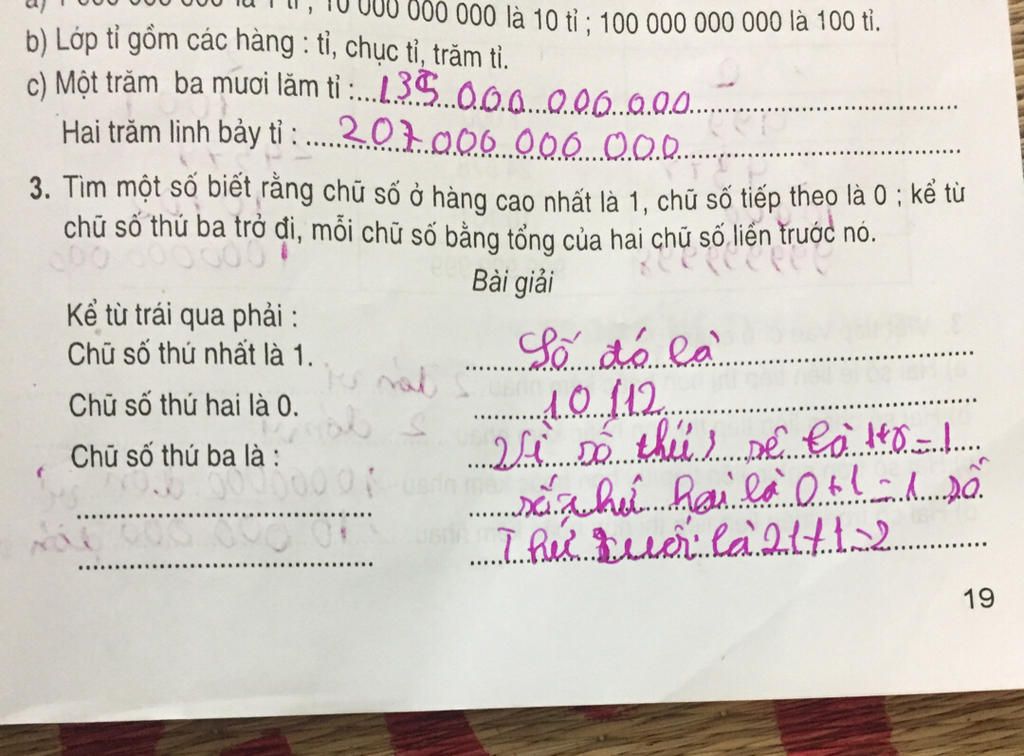 000 000 000 là 1 tỉ ; 10 000 000 000 là 10 tỉ ; 100 000 000 000 là 100 tỉ.
b) Lớp tỉ gồm các hàng : tỉ, chục tỉ, trăm tỉ.
c) Một trăm ba mươi lăm tỉ : 135 000 000 000
Hai trăm linh bảy tỉ : 207 000 000 000
3. Tìm một số biết rằng chữ số ở hàng cao nhất là 1, chữ số tiếp theo là 0 ; kể từ
chữ số thứ ba trở đi, mỗi chữ số bằng tổng của hai chữ số liền trước nó.
Bài giải
Kể từ trái qua phải :
Chữ số thứ nhất là 1. Số đó là
Chữ số thứ hai là 0. 10 112
Chữ số thứ ba là : Vì số thứ 1 sẽ là 1+0=1
số thứ hai là 0+1=1 số
Thứ cuối là 1+1=2
19